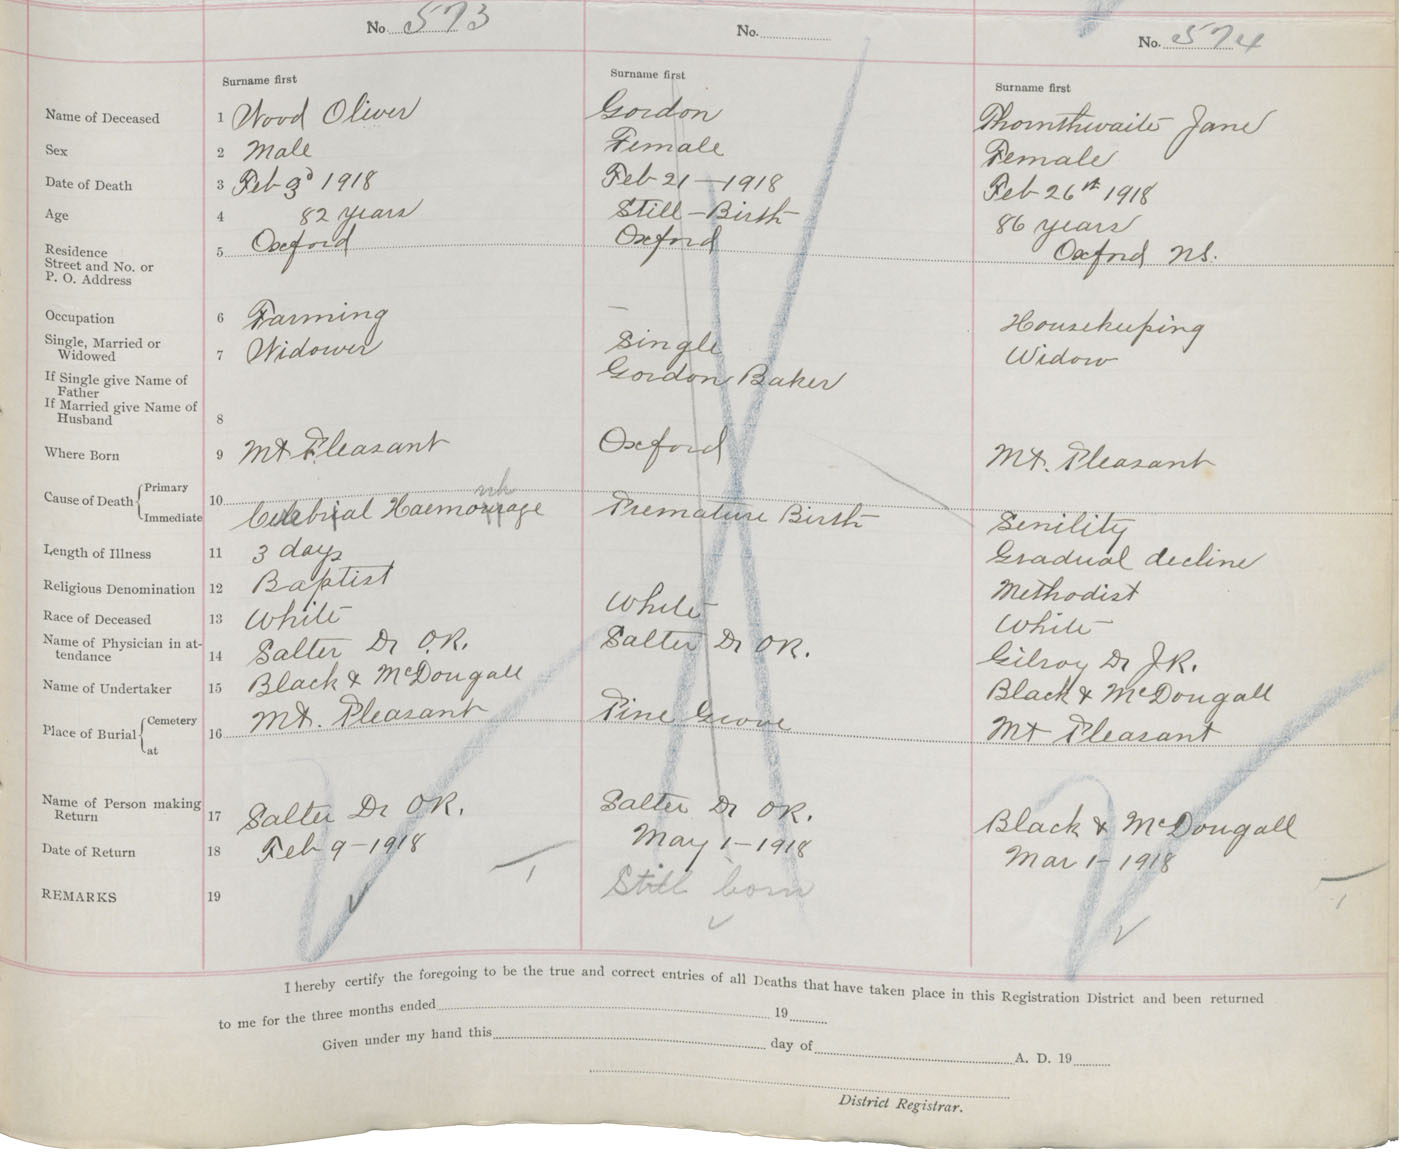 No. 573 No. No. 574
Surname first Surname first Surname first
Name of Deceased 1 Wood Oliver Gordon Thornthwaite Jane
Sex 2 Male Female Female
Date of Death 3 Feb 3d 1918 Feb 21-1918 Feb 26th 1918
Age 4 82 years Still-Birth 86 years
Residence
Street and No. or
P. O. Address 5 Oxford Oxford Oxford N.S.
Occupation 6 Farming — Housekeeping
Single, Married or
Widowed 7 Widower Single Widow
If Single give Name of
Father Gordon Baker
If Married give Name of
Husband 8
Where Born 9 Mt Pleasant Oxford Mt. Pleasant
Cause of Death { Primary
Immediate 10 Haemorrhage Premature Birth Senility
Length of Illness 11 3 days Gradual decline
Religious Denomination 12 Baptist Methodist
Race of Deceased 13 White White White
Name of Physician in at-
tendance 14 Salter Dr O.R. Salter Dr OR. Gilroy Dr J.R.
Name of Undertaker 15 Black & McDougall Black & McDougall
Place of Burial { Cemetery
at 16 Mt. Pleasant Pine Grove Mt Pleasant
Name of Person making
Return 17 Salter Dr OR. Salter Dr OR. Black & McDougall
Date of Return 18 Feb 9-1918 May 1-1918 Mar 1-1918
REMARKS 19 Still born
I hereby certify the foregoing to be the true and correct entries of all Deaths that have taken place in this Registration District and been returned
to me for the three months ended 19
Given under my hand this day of A. D. 19
District Registrar.